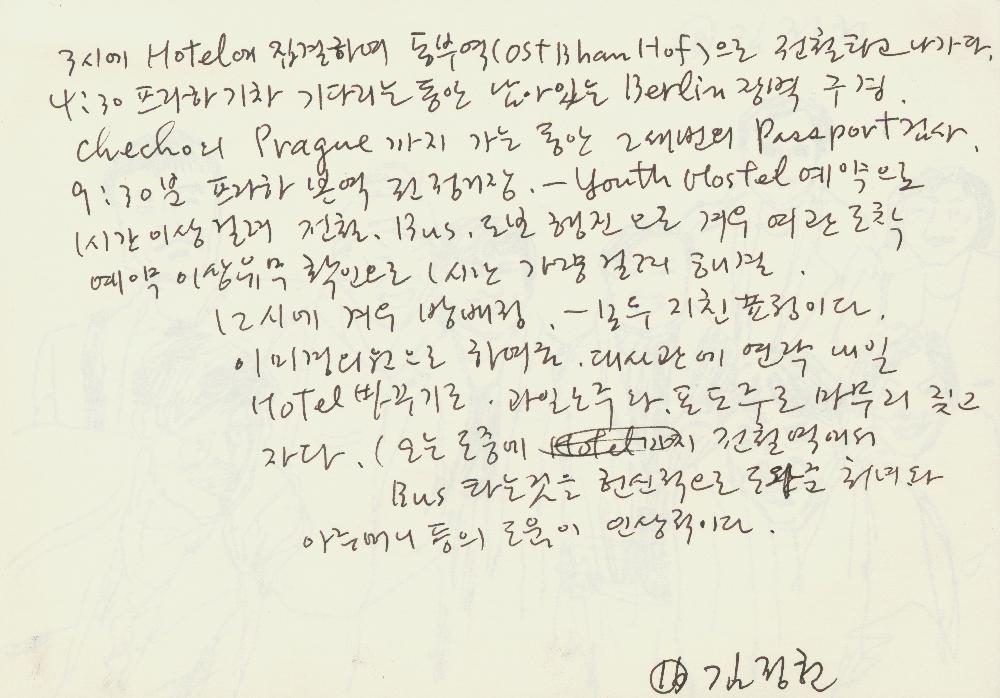 3시에 Hotel에 집결하여 동부역(Ost Bhan Hof)으로 전철타고 나가다.
4:30 프라하 기차 기다리는 동안 남아있는 Berlin 장벽 구경.
checho의 Prague까지 가는 동안 2세번의 Passport검사.
9:30분 프라하 본역 전 정거장. - Youth Hostel 예약으로
1시간 이상 걸려 전철. Bus. 도보 행진으로 겨우 여관 도착
예약 이상유무 확인으로 1시간 가량 걸려 해결.
12시에 겨우 방배정. - 모두 지친 표정이다.
이미경의원으로 하여금. 대사관에 연락 내일
Hotel 바꾸기로. 과일소주와. 포도주로 마무리 짓고
자다. (오는 도중에 전철역에서
Bus 타는것을 헌신적으로 도와준 처녀와
아주머니 등의 도움이 인상적이다.
16 김정헌